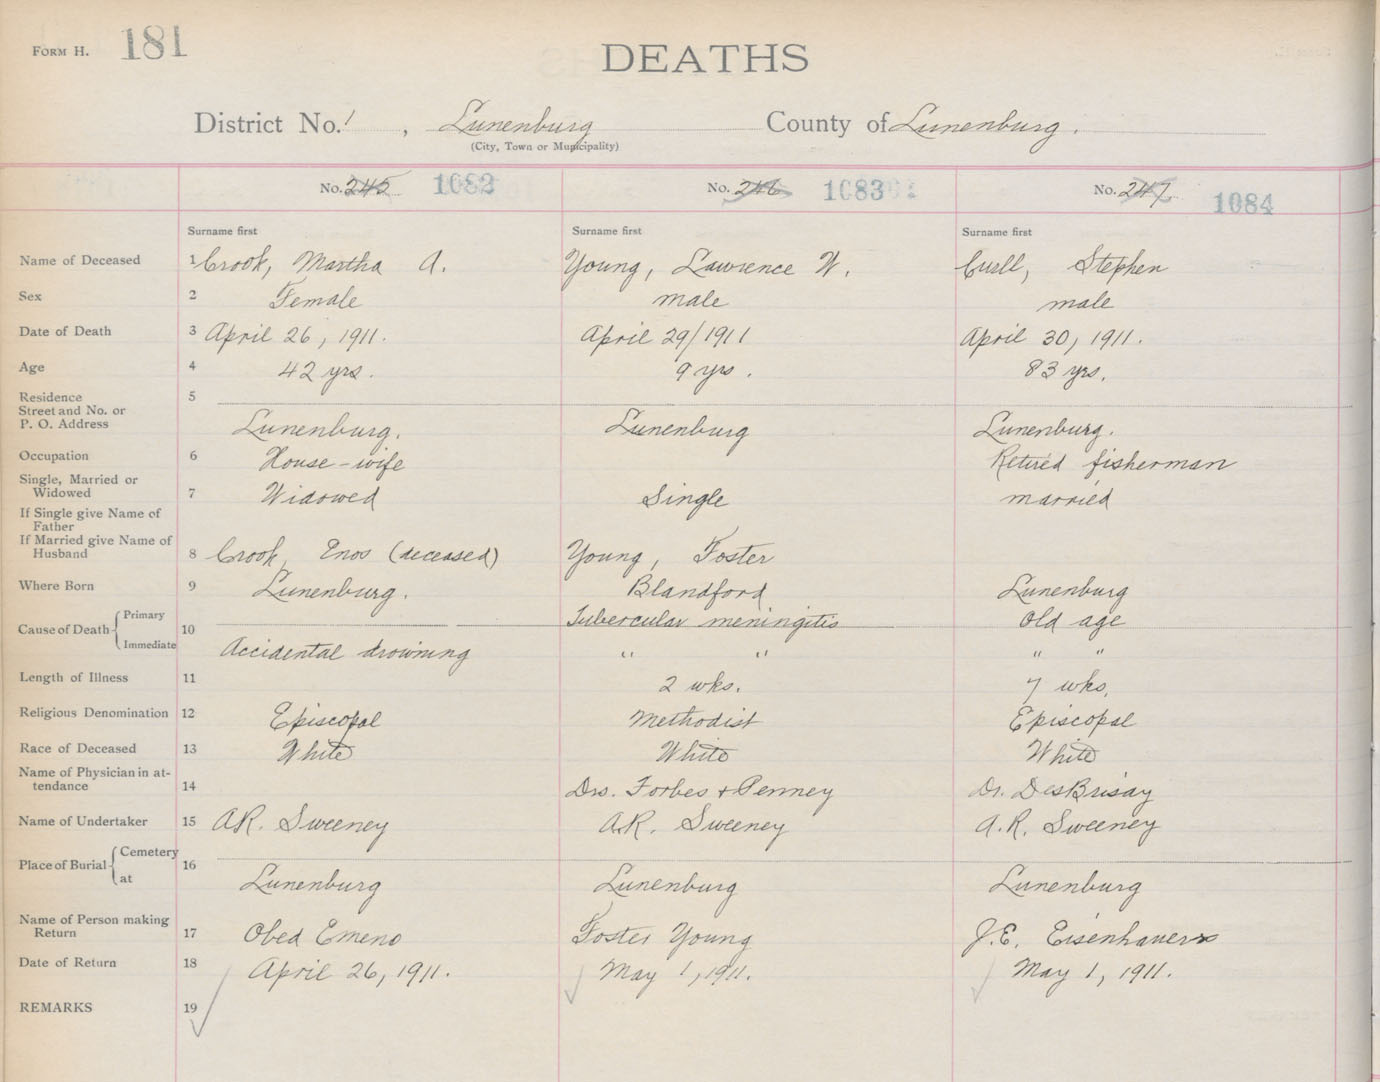 FORM H. 181
DEATHS
District No. 1, Lunenburg County of Lunenburg.
(City, Town or Municipality)
No. 245 1082 No. 246 1083 No. 247 1084
Surname first Surname first Surname first
Name of Deceased 1 Crook, Martha A. Young, Lawrence W. Curll, Stephen
Sex 2 Female male male
Date of Death 3 April 26, 1911. April 29/1911 April 30, 1911.
Age 4 42 yrs. 9 yrs. 83 yrs.
Residence 5
Street and No. or
P. O. Address Lunenburg. Lunenburg Lunenburg.
Occupation 6 House-wife Retired fisherman
Single, Married or
Widowed 7 Widowed Single married
If Single give Name of
Father
If Married give Name of
Husband 8 Crook, Enos (deceased) Young, Foster
Where Born 9 Lunenburg. Blandford Lunenburg
Cause of Death Primary 10 Tubercular meningitis Old age
Immediate Accidental drowning " " " "
Length of Illness 11 2 wks. 7 wks.
Religious Denomination 12 Episcopal Methodist Episcopal
Race of Deceased 13 White White White
Name of Physician in at-
tendance 14 Drs. Forbes + Penney Dr. DesBrisay
Name of Undertaker 15 A.R. Sweeney A.R. Sweeney A.R. Sweeney
Place of Burial Cemetery 16
at Lunenburg Lunenburg Lunenburg
Name of Person making
Return 17 Obed Emeno Foster Young J.E. Eisenhauer
Date of Return 18 April 26, 1911. May 1, 1911. May 1, 1911.
REMARKS 19